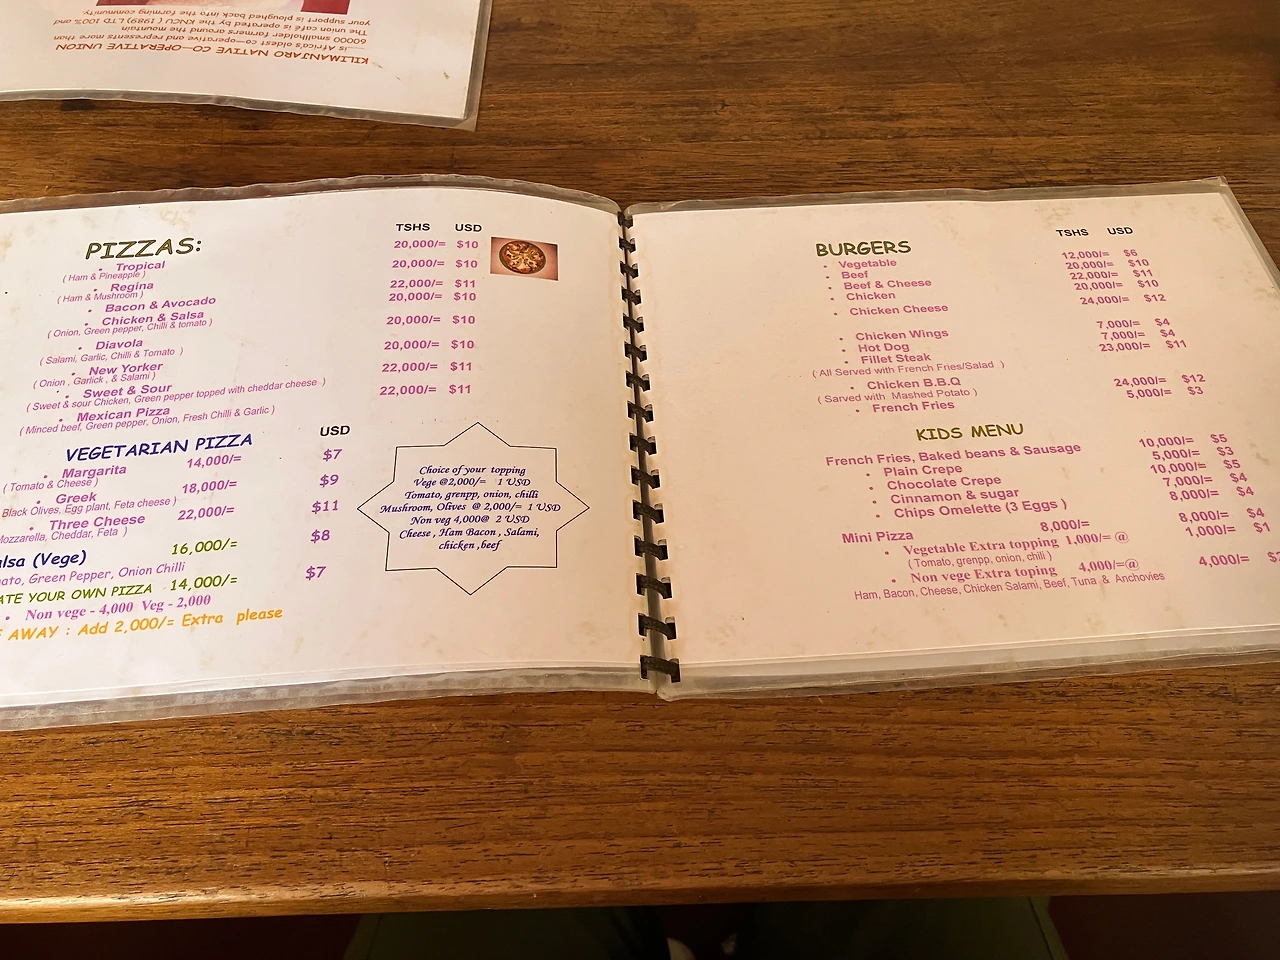 KILIMANJARO NATIVE CO-OPERATIVE UNION
.....is Africa's oldest co-operative and represents more than
60000 smallholder farmers around the mountain
The union café is operated by the KNCU ( 1989) LTD 100% and
your support is ploughed back into the farming community.
TSHS USD
PIZZAS:
20,000/= $10
• Tropical
( Ham & Pineapple )
20,000/= $10
• Regina
( Ham & Mushroom )
22,000/= $11
• Bacon & Avocado
20,000/= $10
• Chicken & Salsa
( Onion, Green pepper, Chilli & tomato )
20,000/= $10
• Diavola
(Salami, Garlic, Chilli & Tomato )
20,000/= $10
• New Yorker
( Onion , Garlick , & Salami )
22,000/= $11
• Sweet & Sour
( Sweet & sour Chicken, Green pepper topped with cheddar cheese )
22,000/= $11
• Mexican Pizza
( Minced beef, Green pepper, Onion, Fresh Chilli & Garlic )
VEGETARIAN PIZZA USD
• Margarita 14,000/= $7
( Tomato & Cheese )
• Greek 18,000/= $9
Black Olives, Egg plant, Feta cheese )
• Three Cheese 22,000/= $11
Mozzarella, Cheddar, Feta )
alsa (Vege) 16,000/= $8
ato, Green Pepper, Onion Chilli
ATE YOUR OWN PIZZA 14,000/= $7
• Non vege - 4,000 Veg - 2,000
E AWAY : Add 2,000/= Extra please
Choice of your topping
Vege @2,000/= 1 USD
Tomato, grenpp, onion, chilli
Mushroom, Olives @ 2,000/= 1 USD
Non veg 4,000@ 2 USD
Cheese , Ham Bacon , Salami,
chicken ,beef
TSHS USD
BURGERS
• Vegetable 12,000/= $6
• Beef 20,000/= $10
• Beef & Cheese 22,000/= $11
• Chicken 20,000/= $10
• Chicken Cheese 24,000/= $12
• Chicken Wings 7,000/= $4
• Hot Dog 7,000/= $4
• Fillet Steak 23,000/= $11
( All Served with French Fries/Salad )
• Chicken B.B.Q 24,000/= $12
( Sarved with Mashed Potato )
• French Fries 5,000/= $3
KIDS MENU
French Fries, Baked beans & Sausage 10,000/= $5
• Plain Crepe 5,000/= $3
• Chocolate Crepe 10,000/= $5
• Cinnamon & sugar 7,000/= $4
• Chips Omelette (3 Eggs ) 8,000/= $4
Mini Pizza 8,000/= 8,000/= $4
• Vegetable Extra topping 1,000/= @ 1,000/= $1
( Tomato, grenpp, onion, chilli )
• Non vege Extra toping 4,000/=@ 4,000/=
Ham, Bacon, Cheese, Chicken Salami, Beef, Tuna & Anchovies